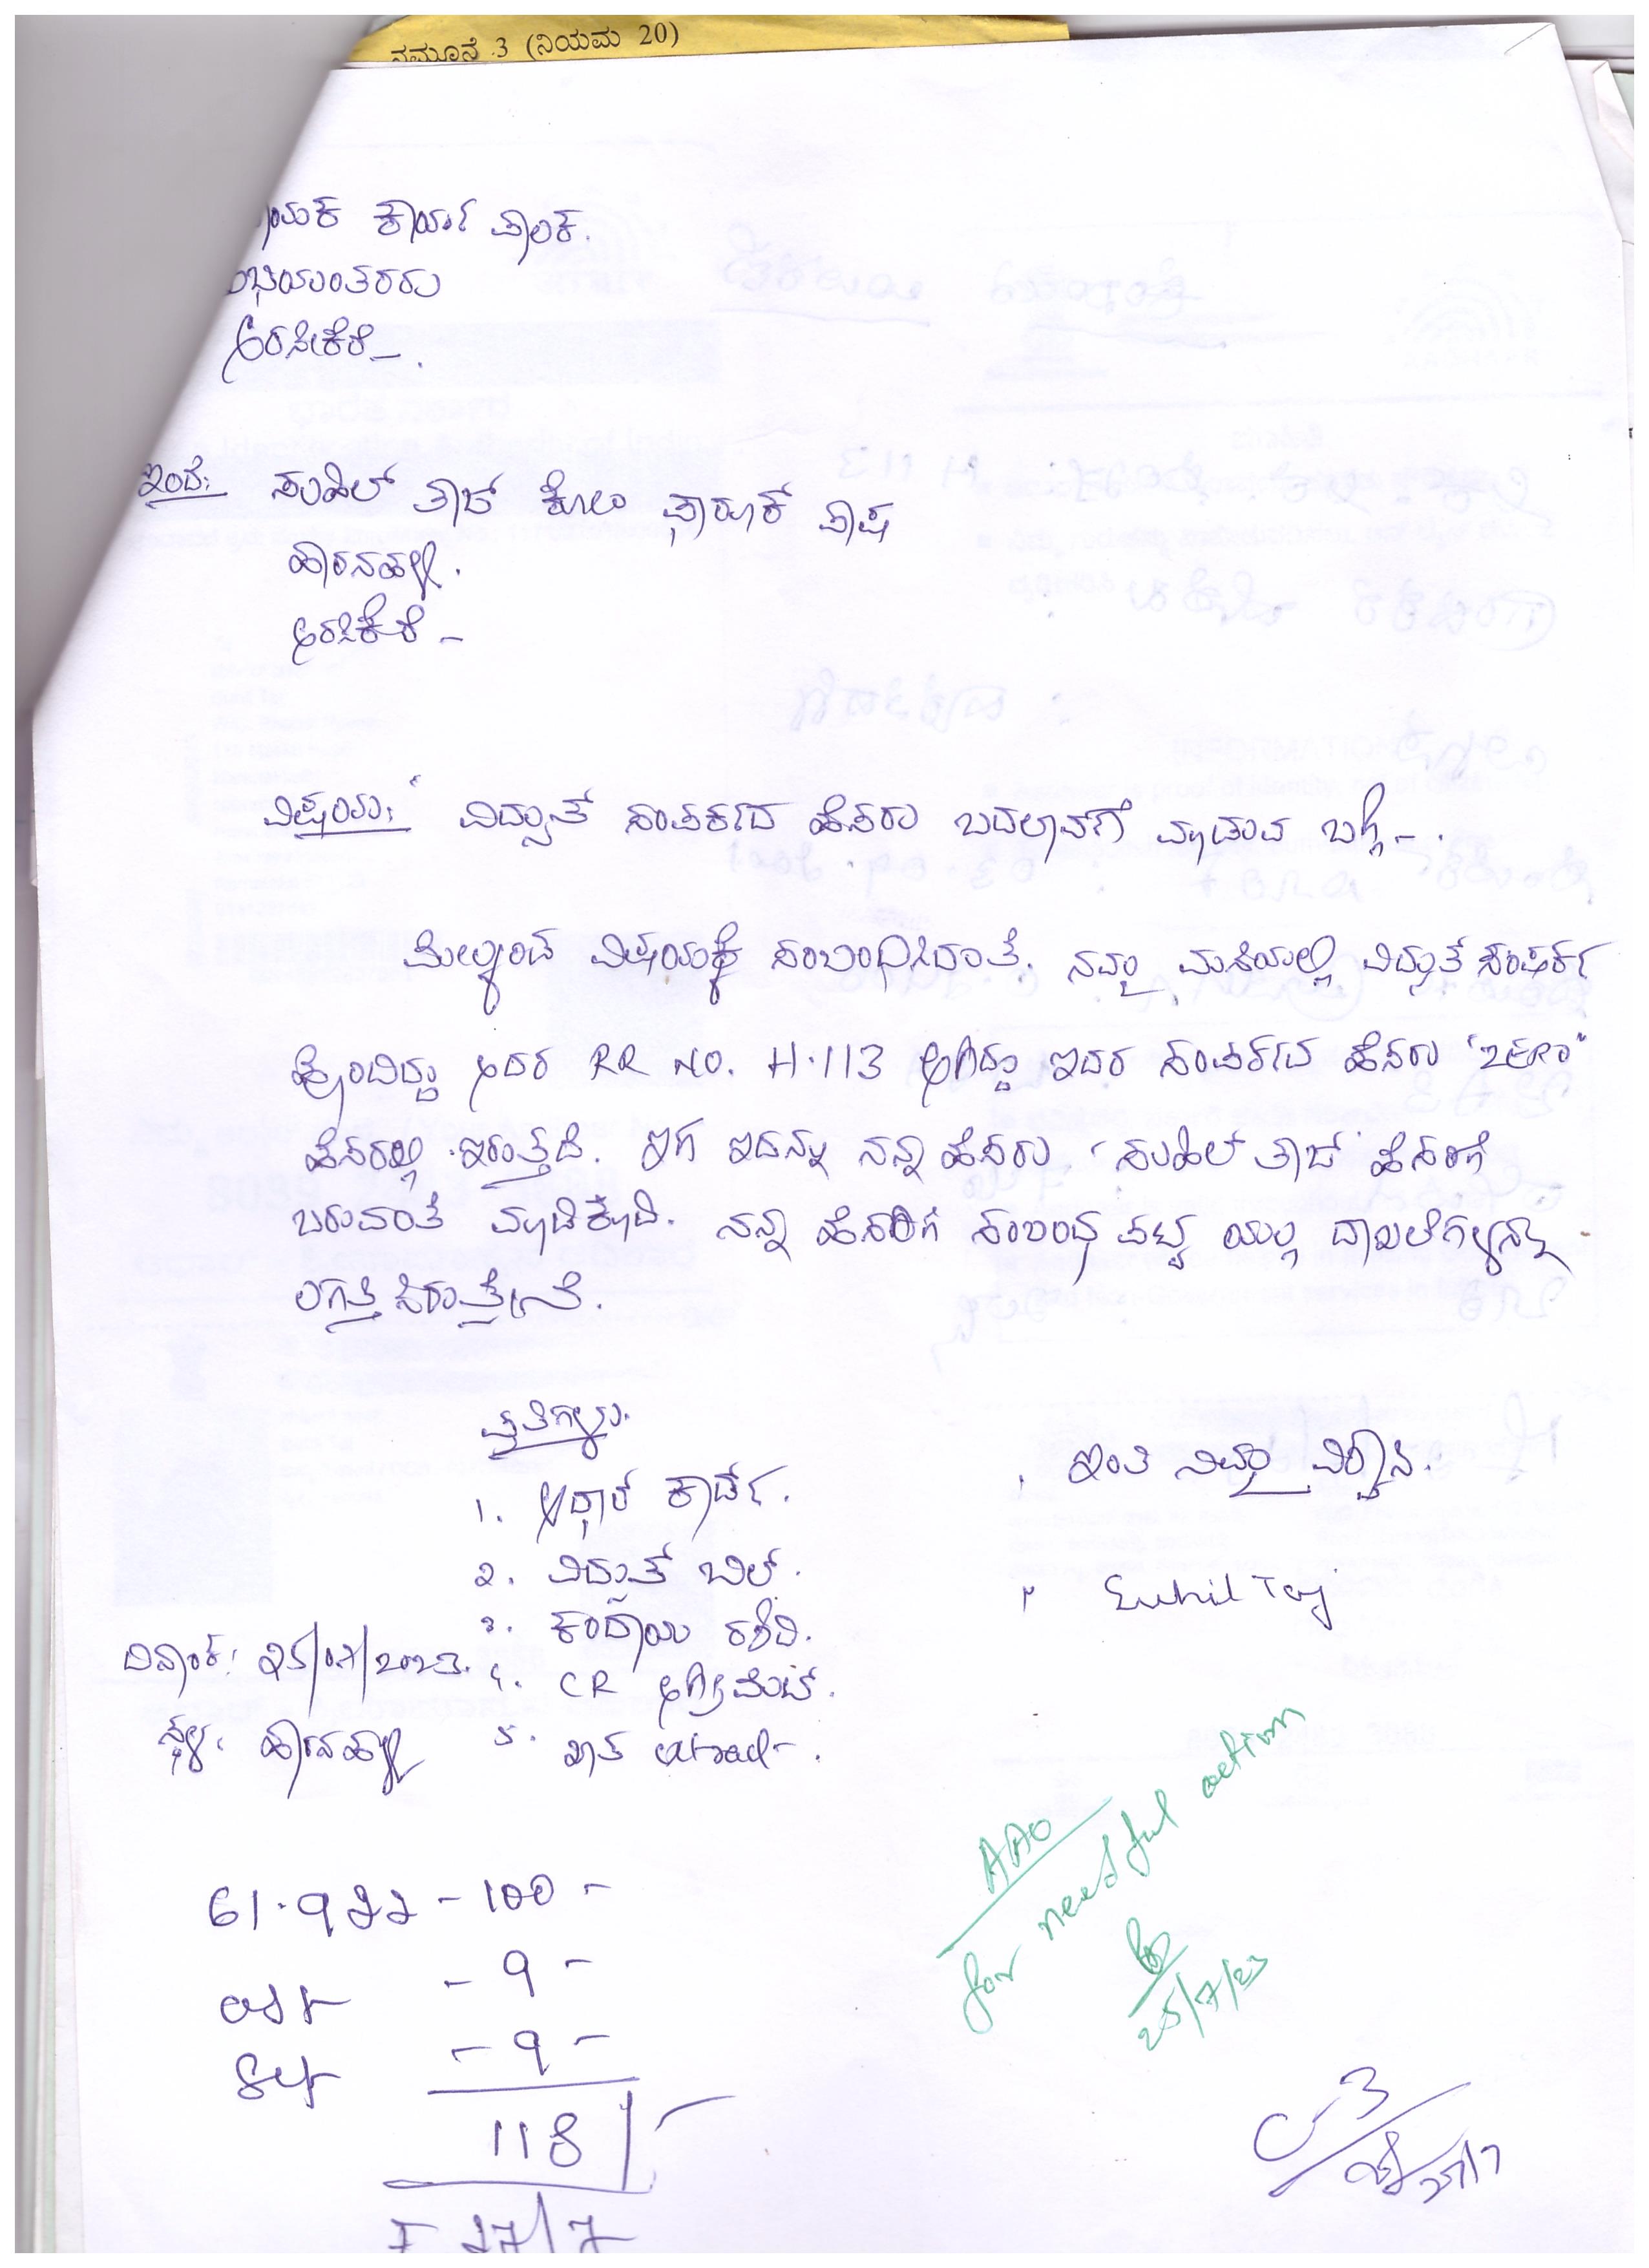 ನಮೂನೆ 3 (ನಿಯಮ 20)
ಾಯಕ ಕಾರ್ಯ ಪಾಲಕ.
ಭಿಯಂತರರು
ಅರಸೀಕೆರೆ.
ಇಂದ: ಸುಹಿಲ್ ತಾಜ್ ಕೋಂ ಫಾರೂಕ್ ಪಾಷ
ಹಾರನಹಳ್ಳಿ.
ಅರಸಿಕೆರೆ -
ವಿಷಯ: ವಿದ್ಯುತ್ ಸಂಪರ್ಕದ ಹೆಸರು ಬದಲಾವಣೆ ಮಾಡುವ ಬಗ್ಗೆ -.
ಮೇಲ್ಕಂಡ ವಿಷಯಕ್ಕೆ ಸಂಬಂಧಿಸಿದಂತೆ. ನಮ್ಮ ಮನೆಯಲ್ಲಿ ವಿದ್ಯುತ್ ಸಂಪರ್ಕ
ಹೊಂದಿದ್ದು ಅದರ RR NO. H.113 ಆಗಿದ್ದು ಇದರ ಸಂಪರ್ಕದ ಹೆಸರು
ಹೆಸರಲ್ಲಿ ಇರುತ್ತದೆ. ಈಗ ಇದನ್ನು ನನ್ನ ಹೆಸರು 'ಸುಹಿಲ್ ತಾಜ್' ಹೆಸರಿಗೆ
ಬರುವಂತೆ ಮಾಡಿಕೊಡಿ. ನನ್ನ ಹೆಸರಿಗೆ ಸಂಬಂಧ ಪಟ್ಟ ಯಲ್ಲ ದಾಖಲೆಗಳನ್ನು
ಲಗತ್ತಿಸಿರುತ್ತೇನೆ.
ಪ್ರತಿಗಳು.
ಇಂತಿ ನಿಮ್ಮ ವಿಶ್ವಾಸಿ.
1. ಆಧಾರ್ ಕಾರ್ಡ್.
2. ವಿದ್ಯುತ್ ಬಿಲ್.
Suhil Taj
3. ಕಂದಾಯ ರಶೀದಿ.
ದಿನಾಂಕ: 25/07/2023.
4. CR ಅಗ್ರಿಮೆಂಟ್.
ಸ್ಥಳ: ಹಾರನಹಳ್ಳಿ
5. ಖಾತ extract.
AAO
for needful action
25/7/23
61.922 - 100 -
- 9 -
- 9 -
118/-
27/7
C3
27/7